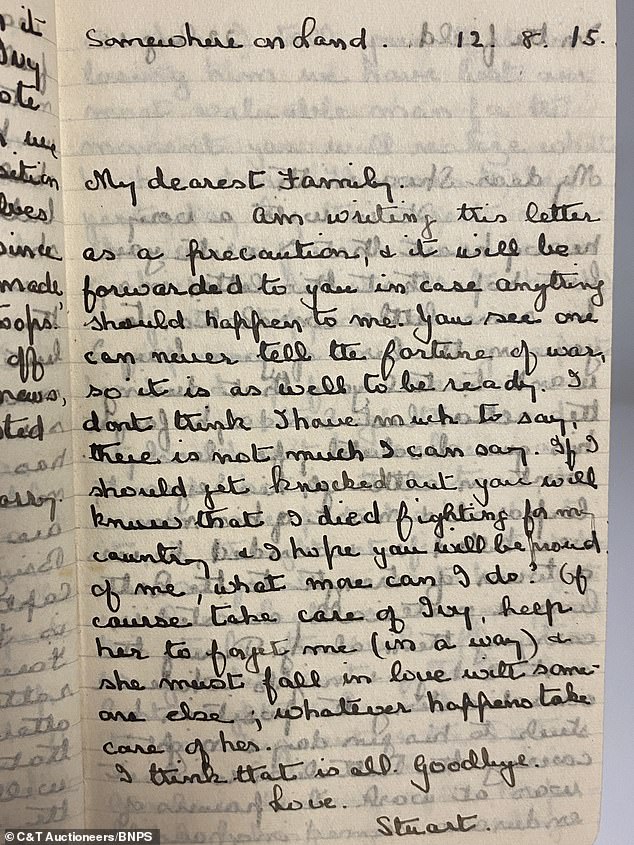 Somewhere on Land. 12. 8. 15.
My dearest Family.
Am writing this letter
as a precaution, & it will be
forwarded to you in case anything
should happen to me. You see one
can never tell the fortune of war,
so it is as well to be ready. I
dont think I have much to say,
there is not much I can say. If I
should get knocked out you will
know that I died fighting for my
country & I hope you will be proud
of me, what more can I do? Of
course take care of Ivy, help
her to forget me (in a way) &
she must fall in love with some-
one else, whatever happens take
care of her.
I think that is all. Goodbye.
Love.
Stuart.
it
Ivy
ote
me
sition
lves
since
made,
oops.
off
news,
sted
arry.
© C&T Auctioneers/BNPS